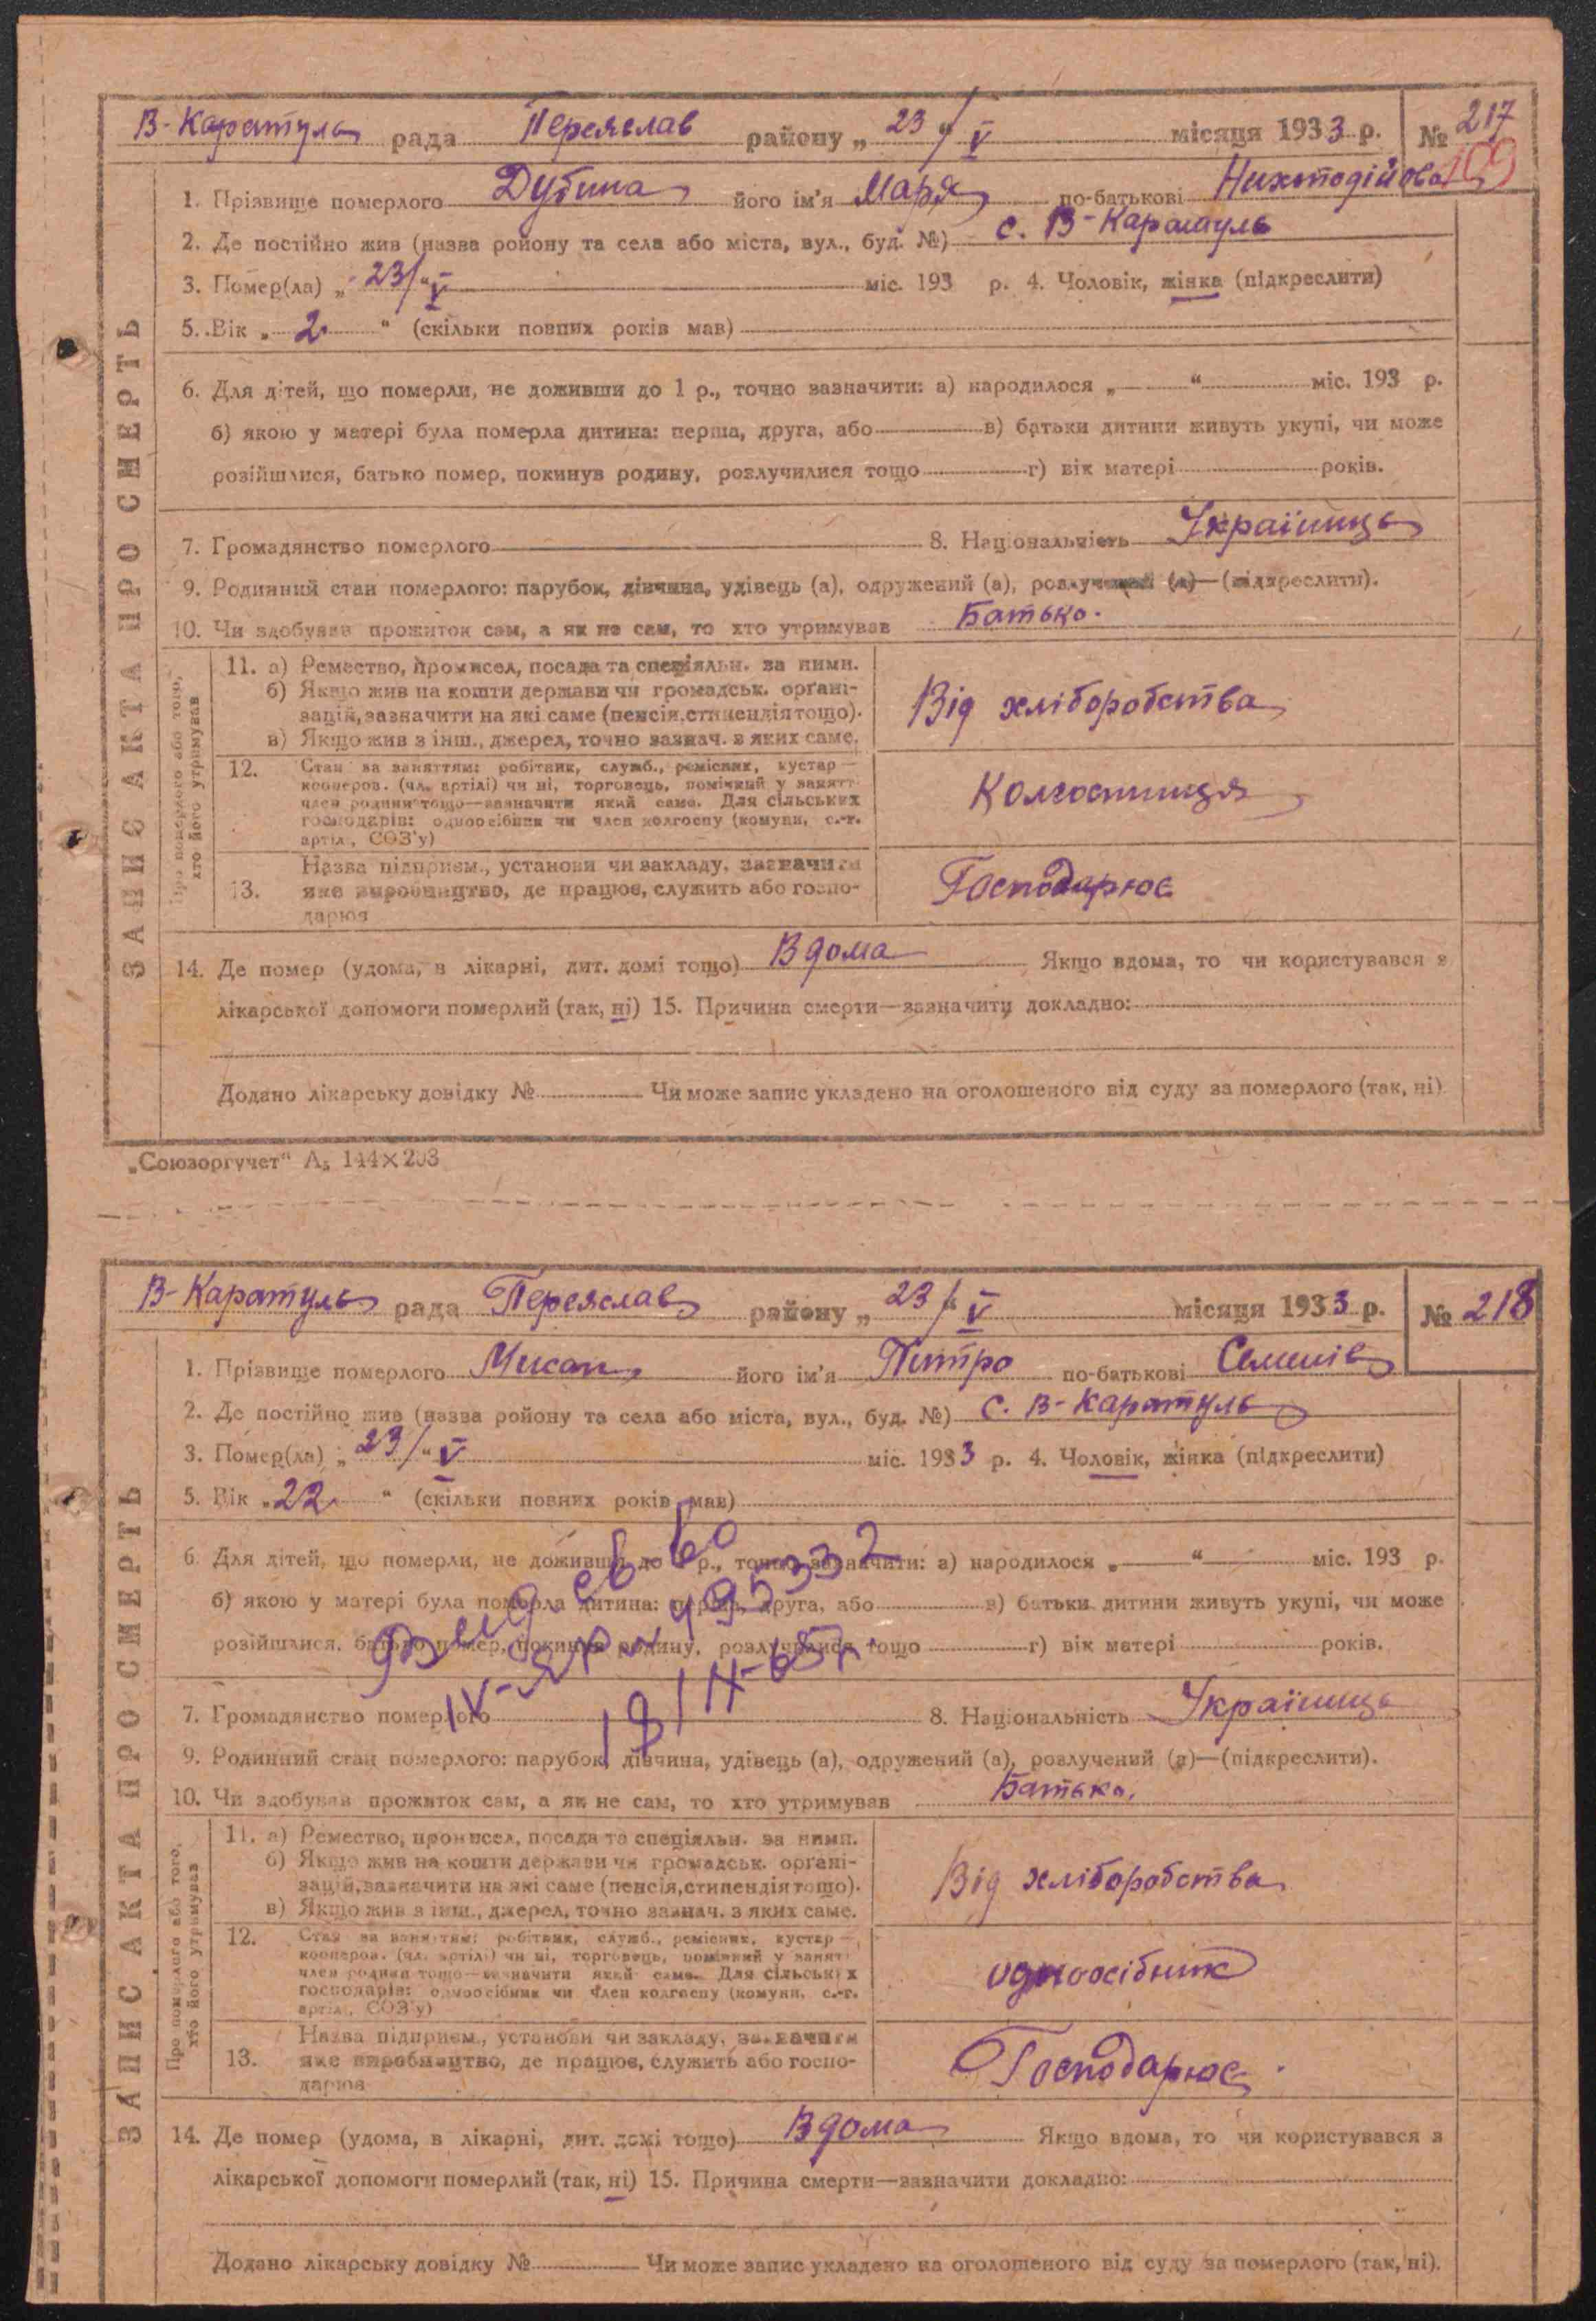 В-Каратуль рада Переяслав району „ 23/V " місяця 1933 р. № 217
199
1. Прізвище померлого Дубина його ім'я Марія по-батькові
2. Де постійно жив (назва ройону та села або міста, вул., буд. №) с. В-Каратуль
3. Помер(ла) „ 23/V " міс. 193 р. 4. Чоловік, жінка (підкреслити)
5. Вік „ 2 " (скільки повних років мав)
6. Для дітей, що померли, не доживши до 1 р., точно зазначити: а) народилося „ " міс. 193 р.
б) якою у матері була померла дитина: перша, друга, або в) батьки дитини живуть укупі, чи може
розійшлися, батько помер, покинув родину, розлучилися тощо г) вік матері років.
7. Громадянство померлого 8. Національність Українець
9. Родинний стан померлого: парубок, дівчина, удівець (а), одружений (а), розлучений (а)—(підкреслити).
10. Чи здобував прожиток сам, а як не сам, то хто утримував Батько.
ЗАПИС АКТА ПРО СМЕРТЬ
Про померлого або того, хто його утримував
11. а) Ремество, промисел, посада та спеціяльн. за ними.
б) Якщо жив на кошти держави чи громадськ. органі-
зацій, зазначити на які саме (пенсія, стипендія тощо).
в) Якщо жив з інш., джерел, точно зазнач. з яких саме.
Від хліборобства
12. Стан за заняттям: робітник, служб., ремісник, кустар—
кооперов. (чл. артілі) чи ні, торговець, помічний у занятт
член родини тощо—зазначити який саме. Для сільських
господарів: одноосібник чи член колгоспу (комуни, с.-г.
артіл., СОЗ'у)
Колгоспниця
13. Назва підприєм., установи чи закладу, зазначити
яке виробництво, де працює, служить або госпо-
дарює
Господарює
14. Де помер (удома, в лікарні, дит. домі тощо) Вдома Якщо вдома, то чи користувався з
лікарської допомоги померлий (так, ні) 15. Причина смерти—зазначити докладно:
Додано лікарську довідку № Чи може запис укладено на оголошеного від суду за померлого (так, ні)
„Союзоргучет" А₅ 144×203
В-Каратуль рада Переяслав району „ 23/V " місяця 1933 р. № 218
1. Прізвище померлого Мисан його ім'я Питро по-батькові Семенів
2. Де постійно жив (назва ройону та села або міста, вул., буд. №) с. В-Каратуль
3. Помер(ла) „ 23/V " міс. 1933 р. 4. Чоловік, жінка (підкреслити)
5. Вік „ 22 " (скільки повних років мав)
6. Для дітей, що померли, не доживши до 1 р., точно зазначити: а) народилося „ " міс. 193 р.
б) якою у матері була померла дитина: перша, друга, або в) батьки дитини живуть укупі, чи може
розійшлися, батько помер, покинув родину, розлучилися тощо г) вік матері років.
7. Громадянство померлого 8. Національність Українець
9. Родинний стан померлого: парубок, дівчина, удівець (а), одружений (а), розлучений (а)—(підкреслити).
10. Чи здобував прожиток сам, а як не сам, то хто утримував Батько.
ЗАПИС АКТА ПРО СМЕРТЬ
Про померлого або того, хто його утримував
11. а) Ремество, промисел, посада та спеціяльн. за ними.
б) Якщо жив на кошти держави чи громадськ. органі-
зацій, зазначити на які саме (пенсія, стипендія тощо).
в) Якщо жив з інш., джерел, точно зазнач. з яких саме.
Від хліборобства
12. Стан за заняттям: робітник, служб., ремісник, кустар—
кооперов. (чл. артілі) чи ні, торговець, помічний у занятт
член родини тощо—зазначити який саме. Для сільських
господарів: одноосібник чи член колгоспу (комуни, с.-г.
артіл., СОЗ'у)
одноосібник
13. Назва підприєм., установи чи закладу, зазначити
яке виробництво, де працює, служить або госпо-
дарює
Господарює
14. Де помер (удома, в лікарні, дит. домі тощо) Вдома Якщо вдома, то чи користувався з
лікарської допомоги померлий (так, ні) 15. Причина смерти—зазначити докладно:
Додано лікарську довідку № Чи може запис укладено на оголошеного від суду за померлого (так, ні).